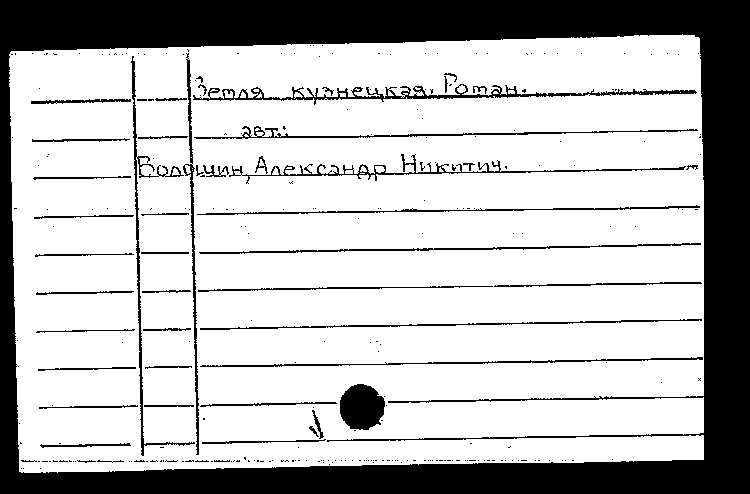 Земля кузнецкая. Роман.
авт.:
Волошин, Александр Никитич.